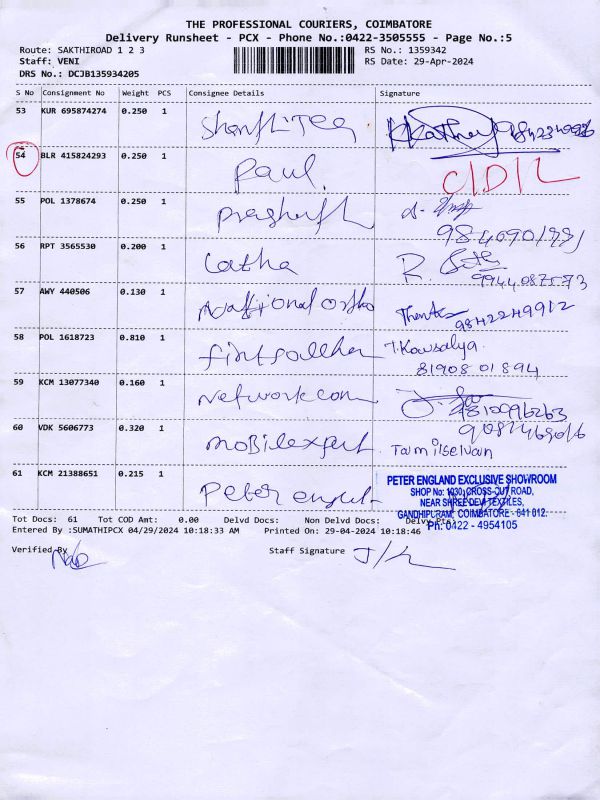 THE PROFESSIONAL COURIERS, COIMBATORE
Delivery Runsheet - PCX - Phone No.:0422-3505555 - Page No.:5
Route: SAKTHIROAD 1 2 3 RS No.: 1359342
Staff: VENI RS Date: 29-Apr-2024
DRS No.: DCJB135934205
S No Consignment No Weight PCS Consignee Details Signature
53 KUR 695874274 0.250 1
54 BLR 415824293 0.250 1 Paul. C/D/L
55 POL 1378674 0.250 1
56 RPT 3565530 0.200 1 Latha R.
57 AWY 440506 0.130 1 9842249912
58 POL 1618723 0.810 1 T.Kowsalya
81908 01894
59 KCM 13077340 0.160 1 Networkcom
60 VDK 5606773 0.320 1 mobilexpert. Tamilselvan
61 KCM 21388651 0.215 1 Peter
PETER ENGLAND EXCLUSIVE SHOWROOM
SHOP No: 1030, CROSS-CUT ROAD,
NEAR SHREE DEVI TEXTILES,
GANDHIPURAM, COIMBATORE - 641 012.
Ph: 0422 - 4954105
Tot Docs: 61 Tot COD Amt: 0.00 Delvd Docs: Non Delvd Docs:
Entered By :SUMATHIPCX 04/29/2024 10:18:33 AM Printed On: 29-04-2024 10:18:46
Verified By Staff Signature